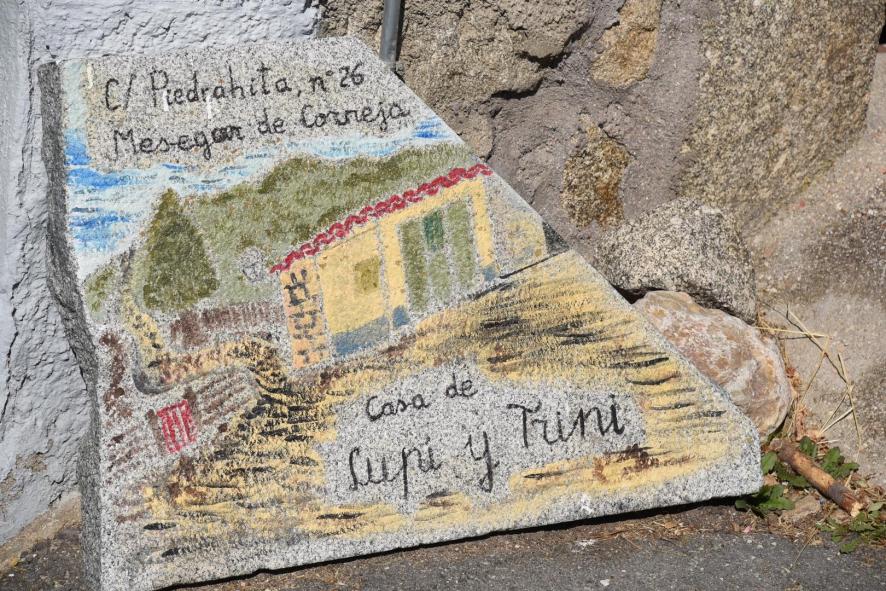 C/ Piedrahita, nº 26
Mesegar de Corneja
Casa de
Lupi y Trini